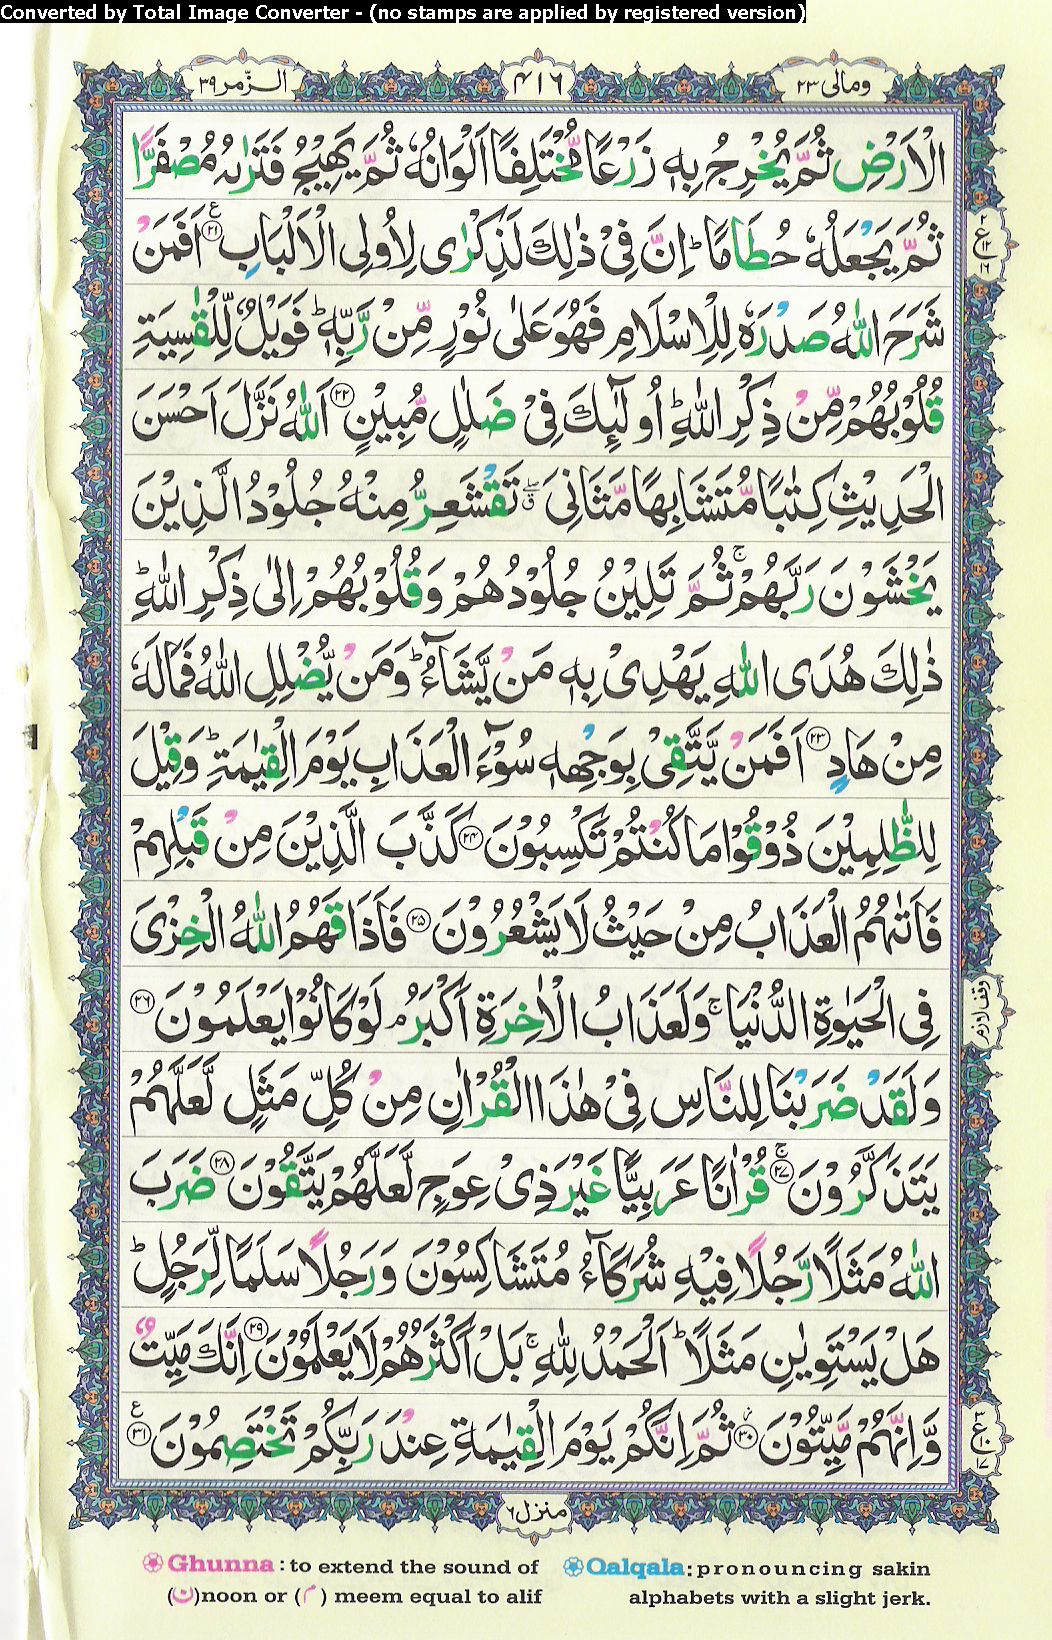 Converted by Total Image Converter - (no stamps are applied by registered version)
الزّمر ٣٩ ٤١٦ ومالی ٢٣
الْاَرْضِ ثُمَّ يُخْرِجُ بِهٖ زَرْعًا مُّخْتَلِفًا اَلْوَانُهٗ ثُمَّ يَهِيْجُ فَتَرٰىهُ مُصْفَرًّا
ثُمَّ يَجْعَلُهٗ حُطَامًا ؕ اِنَّ فِيْ ذٰلِكَ لَذِكْرٰى لِاُولِى الْاَلْبَابِ ﴿٢١﴾ اَفَمَنْ
شَرَحَ اللّٰهُ صَدْرَهٗ لِلْاِسْلَامِ فَهُوَ عَلٰى نُوْرٍ مِّنْ رَّبِّهٖ ؕ فَوَيْلٌ لِّلْقٰسِيَةِ
قُلُوْبُهُمْ مِّنْ ذِكْرِ اللّٰهِ ؕ اُولٰٓئِكَ فِيْ ضَلٰلٍ مُّبِيْنٍ ﴿٢٢﴾ اَللّٰهُ نَزَّلَ اَحْسَنَ
الْحَدِيْثِ كِتٰبًا مُّتَشَابِهًا مَّثَانِيَ ۖۗ تَقْشَعِرُّ مِنْهُ جُلُوْدُ الَّذِيْنَ
يَخْشَوْنَ رَبَّهُمْ ۚ ثُمَّ تَلِيْنُ جُلُوْدُهُمْ وَقُلُوْبُهُمْ اِلٰى ذِكْرِ اللّٰهِ ؕ
ذٰلِكَ هُدَى اللّٰهِ يَهْدِيْ بِهٖ مَنْ يَّشَآءُ ؕ وَمَنْ يُّضْلِلِ اللّٰهُ فَمَا لَهٗ
مِنْ هَادٍ ﴿٢٣﴾ اَفَمَنْ يَّتَّقِيْ بِوَجْهِهٖ سُوْٓءَ الْعَذَابِ يَوْمَ الْقِيٰمَةِ ؕ وَقِيْلَ
لِلظّٰلِمِيْنَ ذُوْقُوْا مَا كُنْتُمْ تَكْسِبُوْنَ ﴿٢٤﴾ كَذَّبَ الَّذِيْنَ مِنْ قَبْلِهِمْ
فَاَتٰىهُمُ الْعَذَابُ مِنْ حَيْثُ لَا يَشْعُرُوْنَ ﴿٢٥﴾ فَاَذَاقَهُمُ اللّٰهُ الْخِزْيَ
فِى الْحَيٰوةِ الدُّنْيَا ۚ وَلَعَذَابُ الْاٰخِرَةِ اَكْبَرُ ۘ لَوْ كَانُوْا يَعْلَمُوْنَ ﴿٢٦﴾
وَلَقَدْ ضَرَبْنَا لِلنَّاسِ فِيْ هٰذَا الْقُرْاٰنِ مِنْ كُلِّ مَثَلٍ لَّعَلَّهُمْ
يَتَذَكَّرُوْنَ ﴿٢٧﴾ ۚ قُرْاٰنًا عَرَبِيًّا غَيْرَ ذِيْ عِوَجٍ لَّعَلَّهُمْ يَتَّقُوْنَ ﴿٢٨﴾ ضَرَبَ
اللّٰهُ مَثَلًا رَّجُلًا فِيْهِ شُرَكَآءُ مُتَشٰكِسُوْنَ وَرَجُلًا سَلَمًا لِّرَجُلٍ ؕ
هَلْ يَسْتَوِيٰنِ مَثَلًا ؕ اَلْحَمْدُ لِلّٰهِ ۚ بَلْ اَكْثَرُهُمْ لَا يَعْلَمُوْنَ ﴿٢٩﴾ اِنَّكَ مَيِّتٌ
وَّاِنَّهُمْ مَّيِّتُوْنَ ﴿٣٠﴾ ثُمَّ اِنَّكُمْ يَوْمَ الْقِيٰمَةِ عِنْدَ رَبِّكُمْ تَخْتَصِمُوْنَ ﴿٣١﴾
٢ ع ١٢ ١٦
وقف لازم
٣ ع ١٠ ١٧
منزل ٦
Ghunna : to extend the sound of
(ن)noon or (م) meem equal to alif
Qalqala: pronouncing sakin
alphabets with a slight jerk.